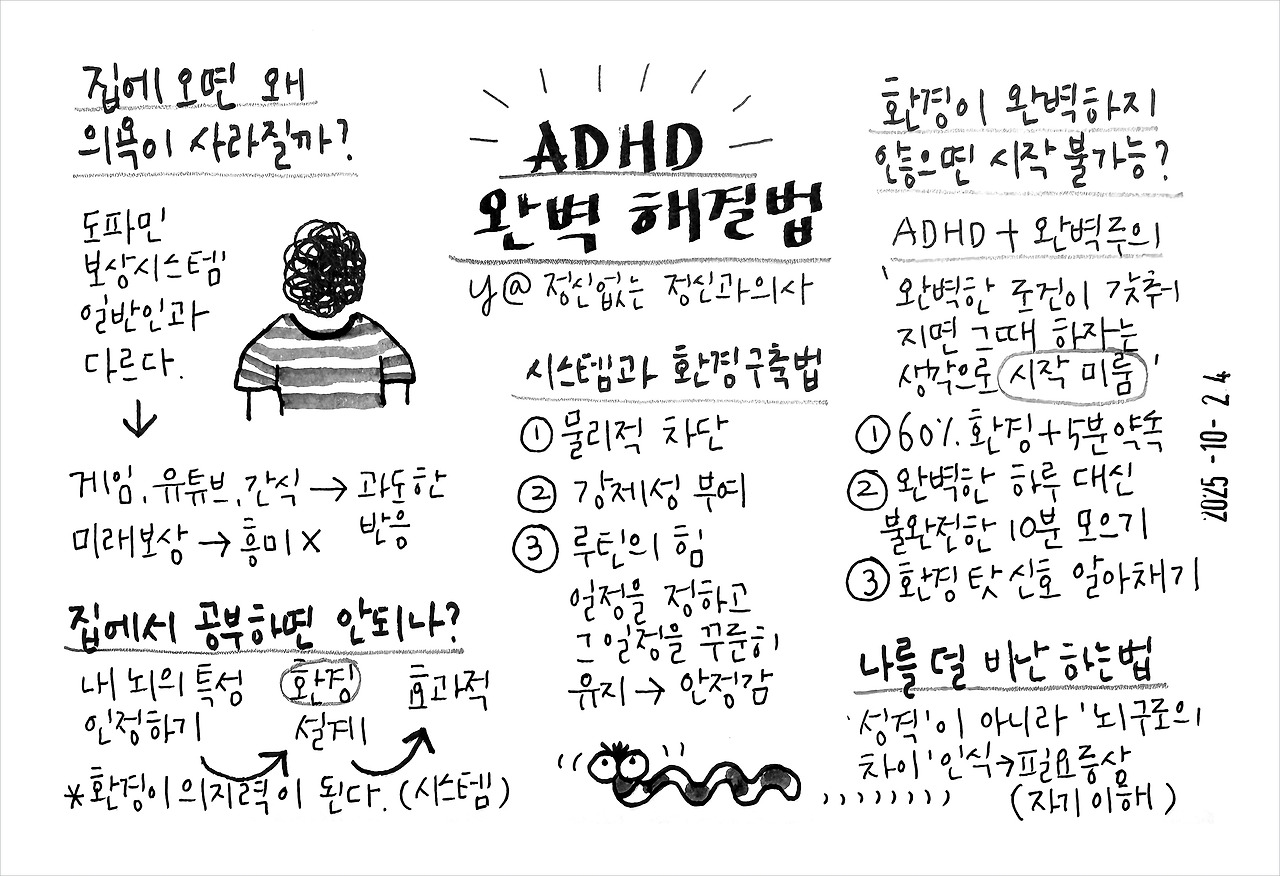 ADHD
완벽 해결법
y@ 정신없는 정신과의사
집에 오면 왜
의욕이 사라질까?
도파민
보상시스템
일반인과
다르다.
↓
게임, 유튜브, 간식 → 과도한
반응
미래보상 → 흥미 X
집에서 공부하면 안되나?
내 뇌의 특성
인정하기
환경
설계
효과적
*환경이 의지력이 된다. (시스템)
시스템과 환경구축법
① 물리적 차단
② 강제성 부여
③ 루틴의 힘
일정을 정하고
그 일정을 꾸준히
유지 → 안정감
환경이 완벽하지
않으면 시작 불가능?
ADHD + 완벽주의
'완벽한 조건이 갖춰
지면 그때 하자는
생각으로 시작 미룸'
① 60% 환경+5분약속
② 완벽한 하루 대신
불완전한 10분 모으기
③ 환경 탓 신호 알아채기
나를 덜 비난 하는법
'성격'이 아니라 '뇌구조의
차이' 인식→필요증상
(자기이해)
2025-10-24